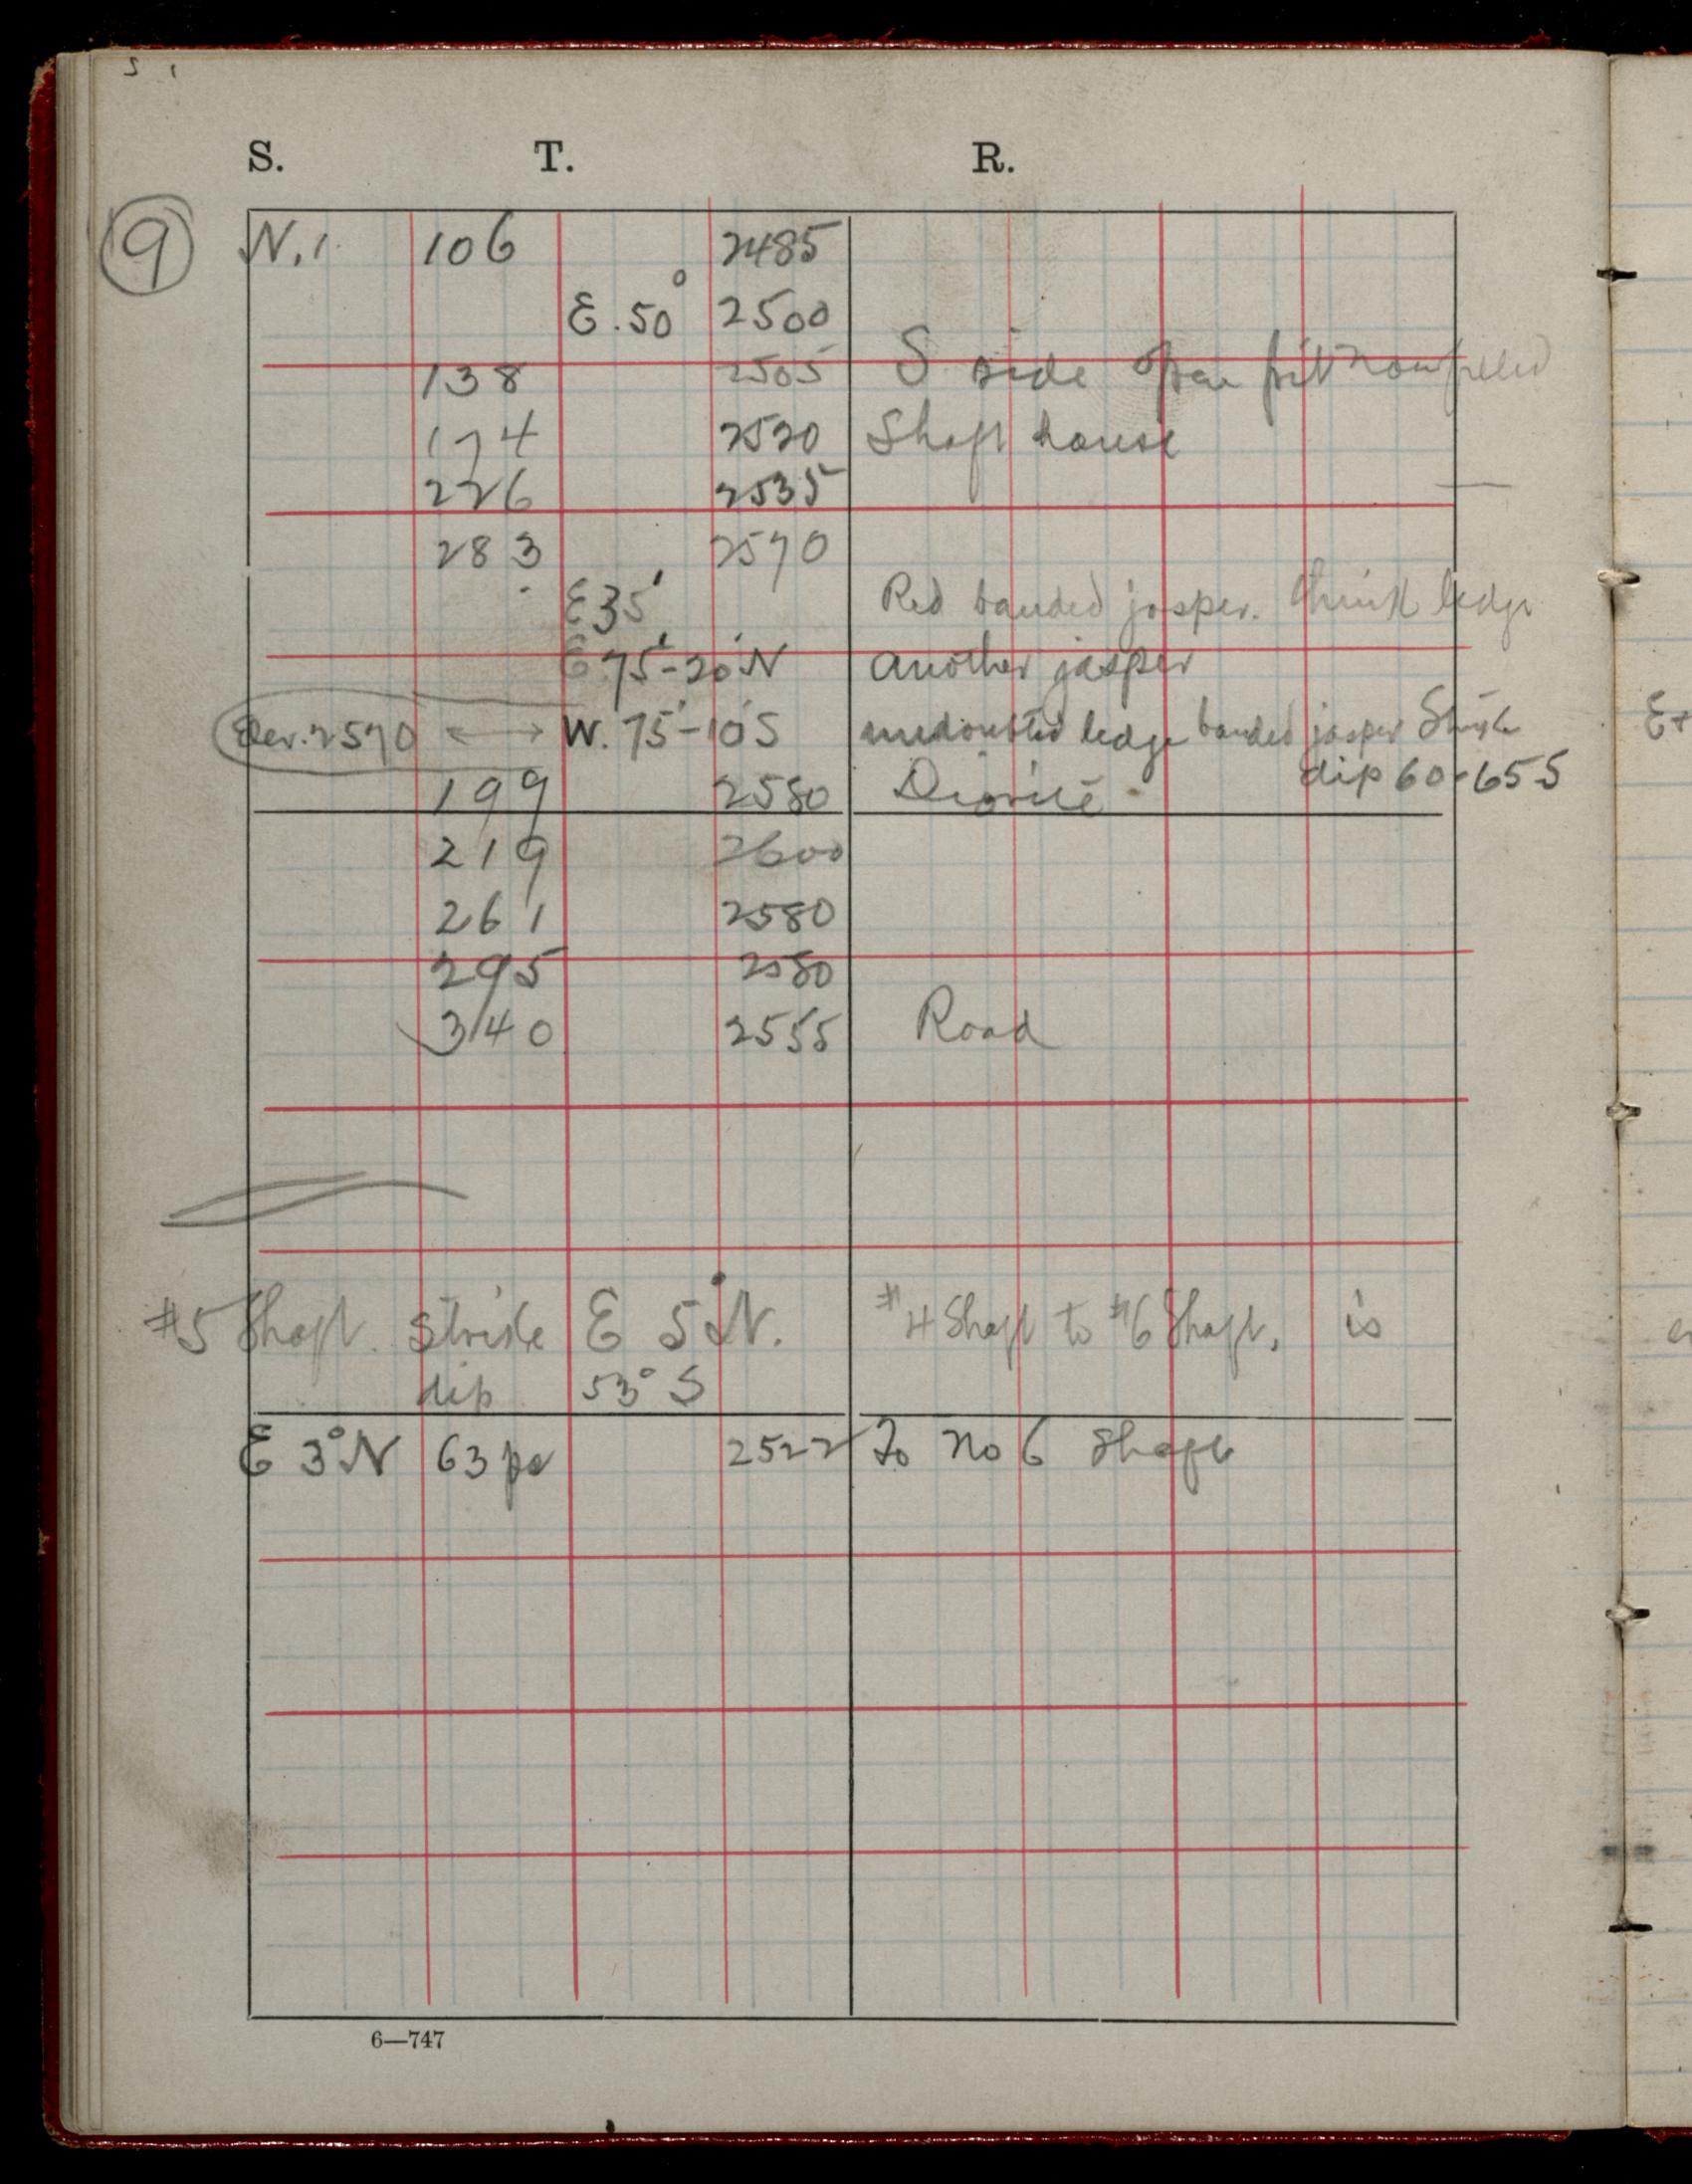 S. T. R.
9
N. 1 106 2485
E. 50° 2500
138 2505 S side open pit now filled
174 2520 Shaft house
226 2535
283 2570
E 35' Red banded jasper. think ledge
E 75'-20'N another jasper
Elev. 2570 ←→ W. 75'-10'S undoubted ledge banded jasper Strike
dip 60-65S
199 2580 Diorite
219 2600
261 2580
295 2580
340 2555 Road
#5 Shaft. Strike E 5°N. #4 Shaft to #6 Shaft, is
dip 53° S
E 3°N 63 pa 2522 To No 6 Shaft
6—747